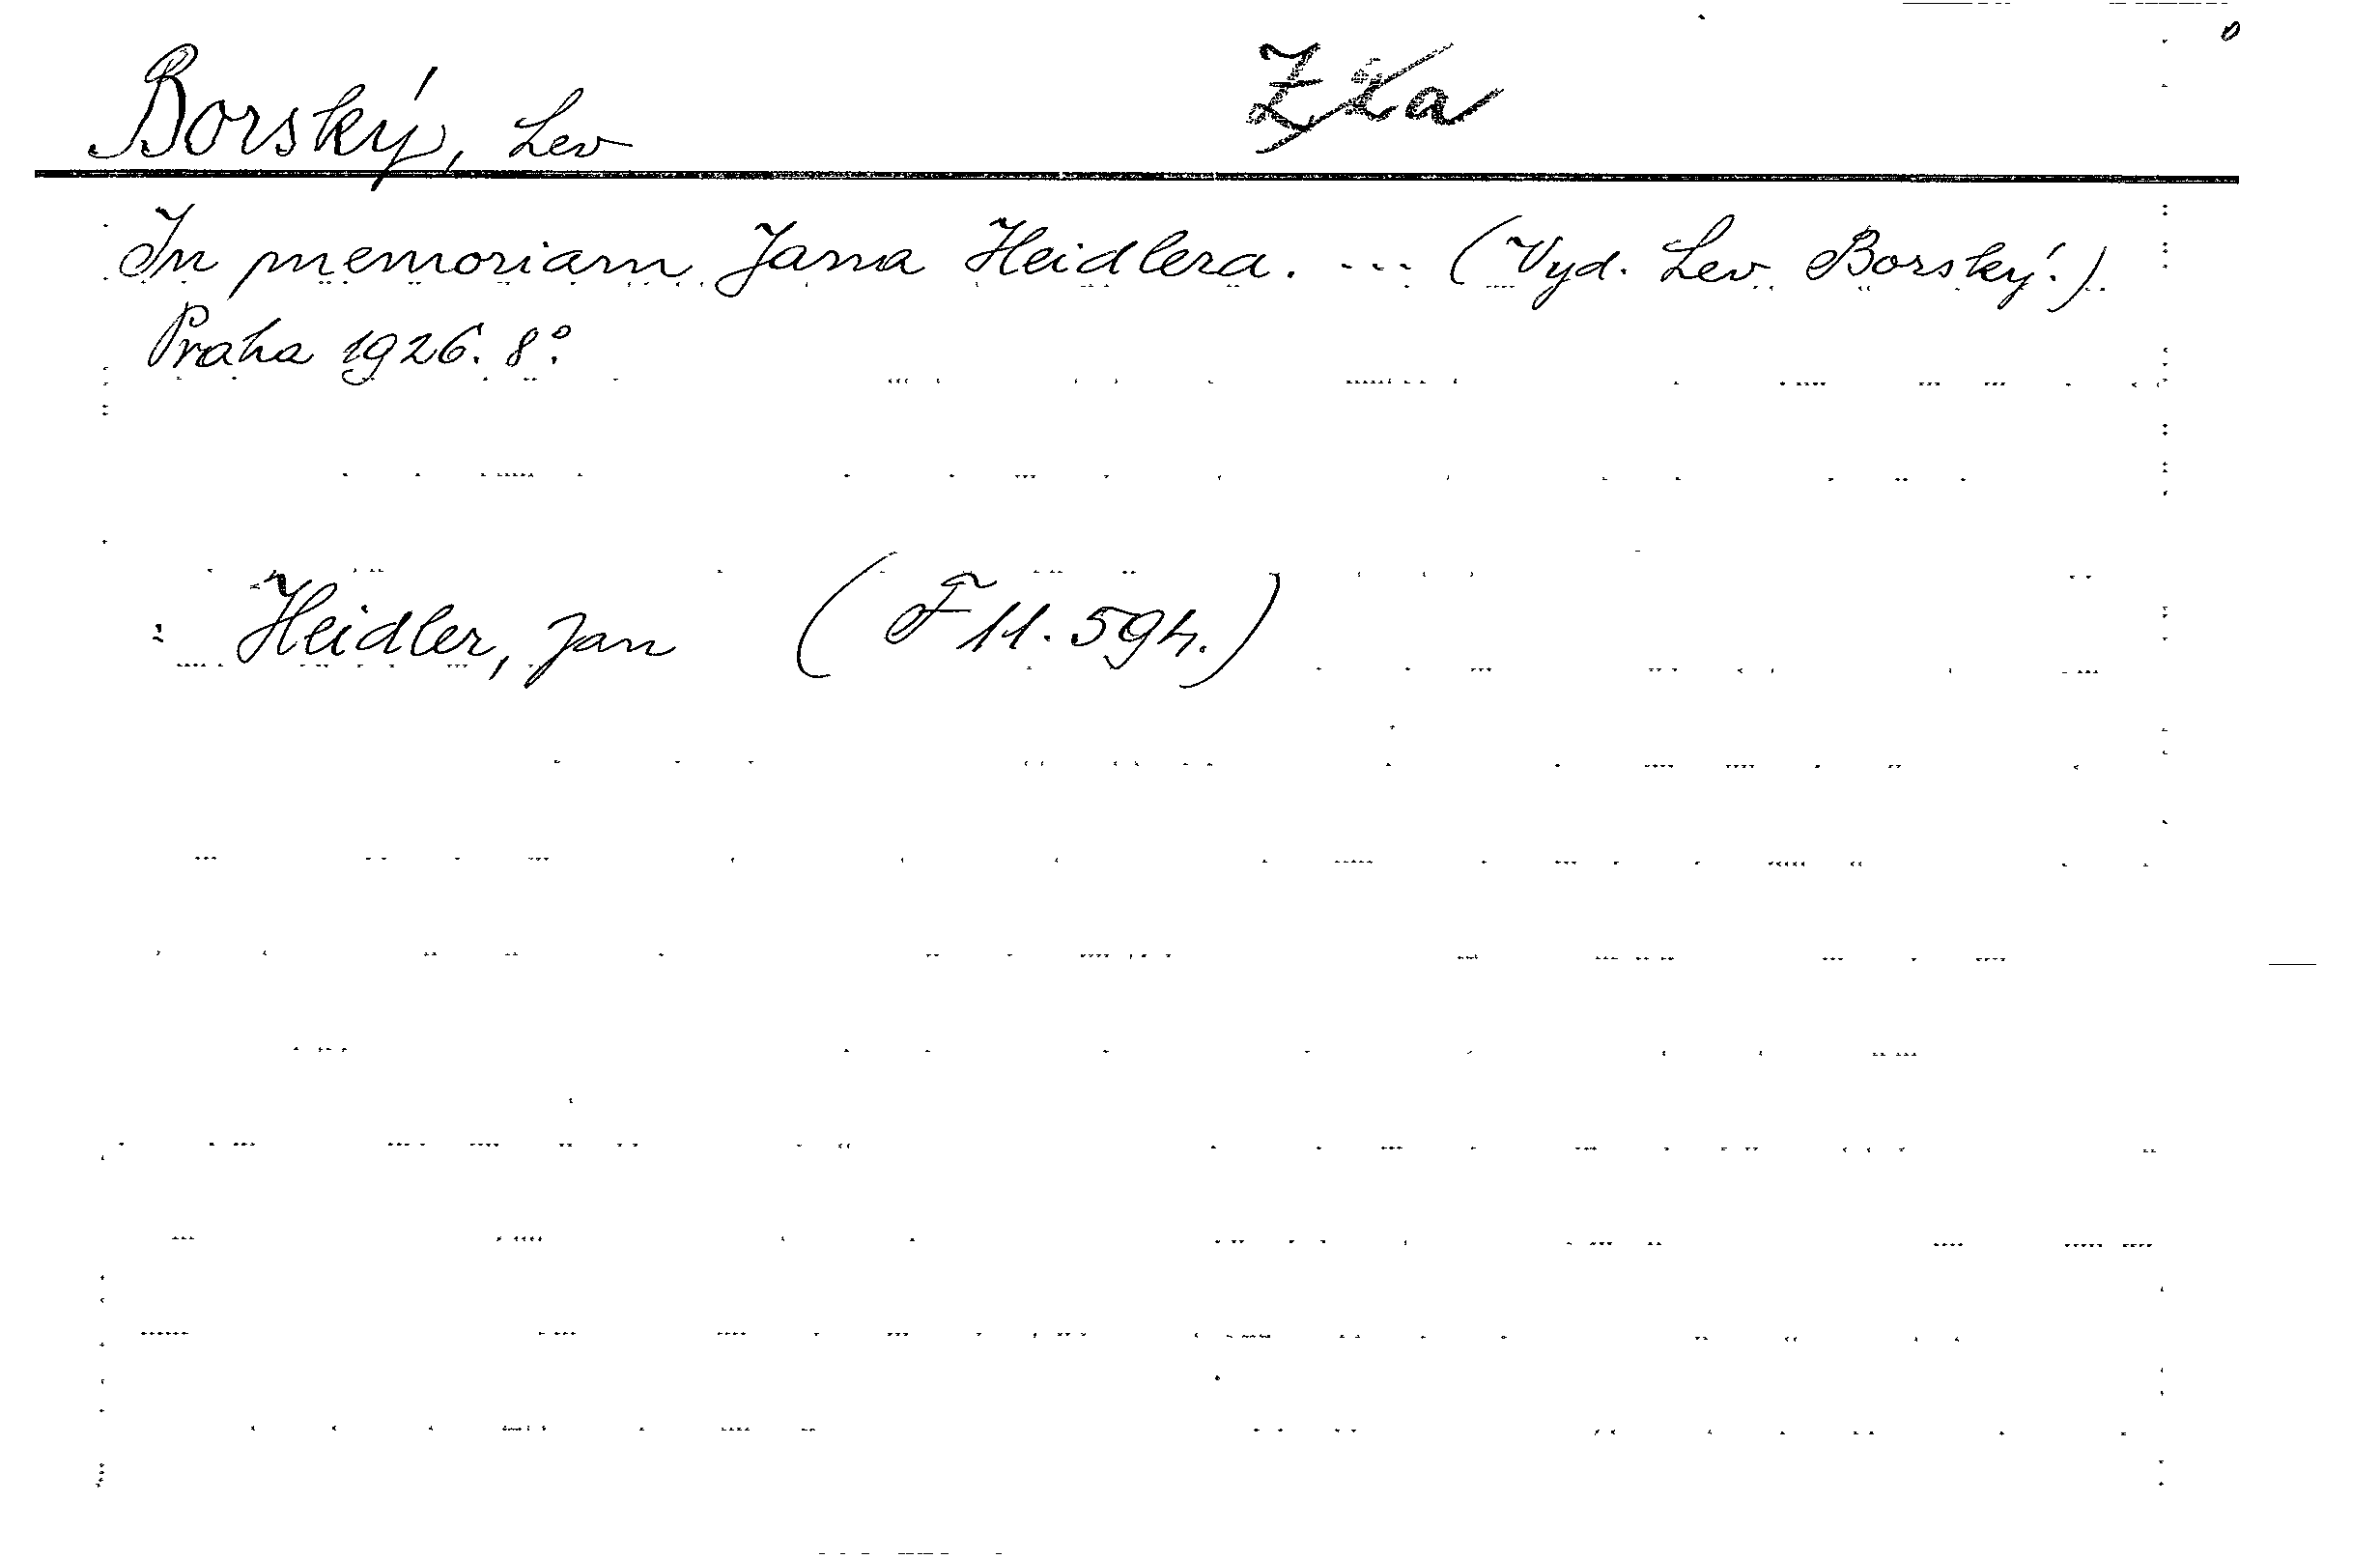 Borský, Lev
In memoriam Jana Heidlera. ... (Vyd. Lev Borský.).
Praha 1926. 8°.
: Heidler, Jan (F 11.594.)